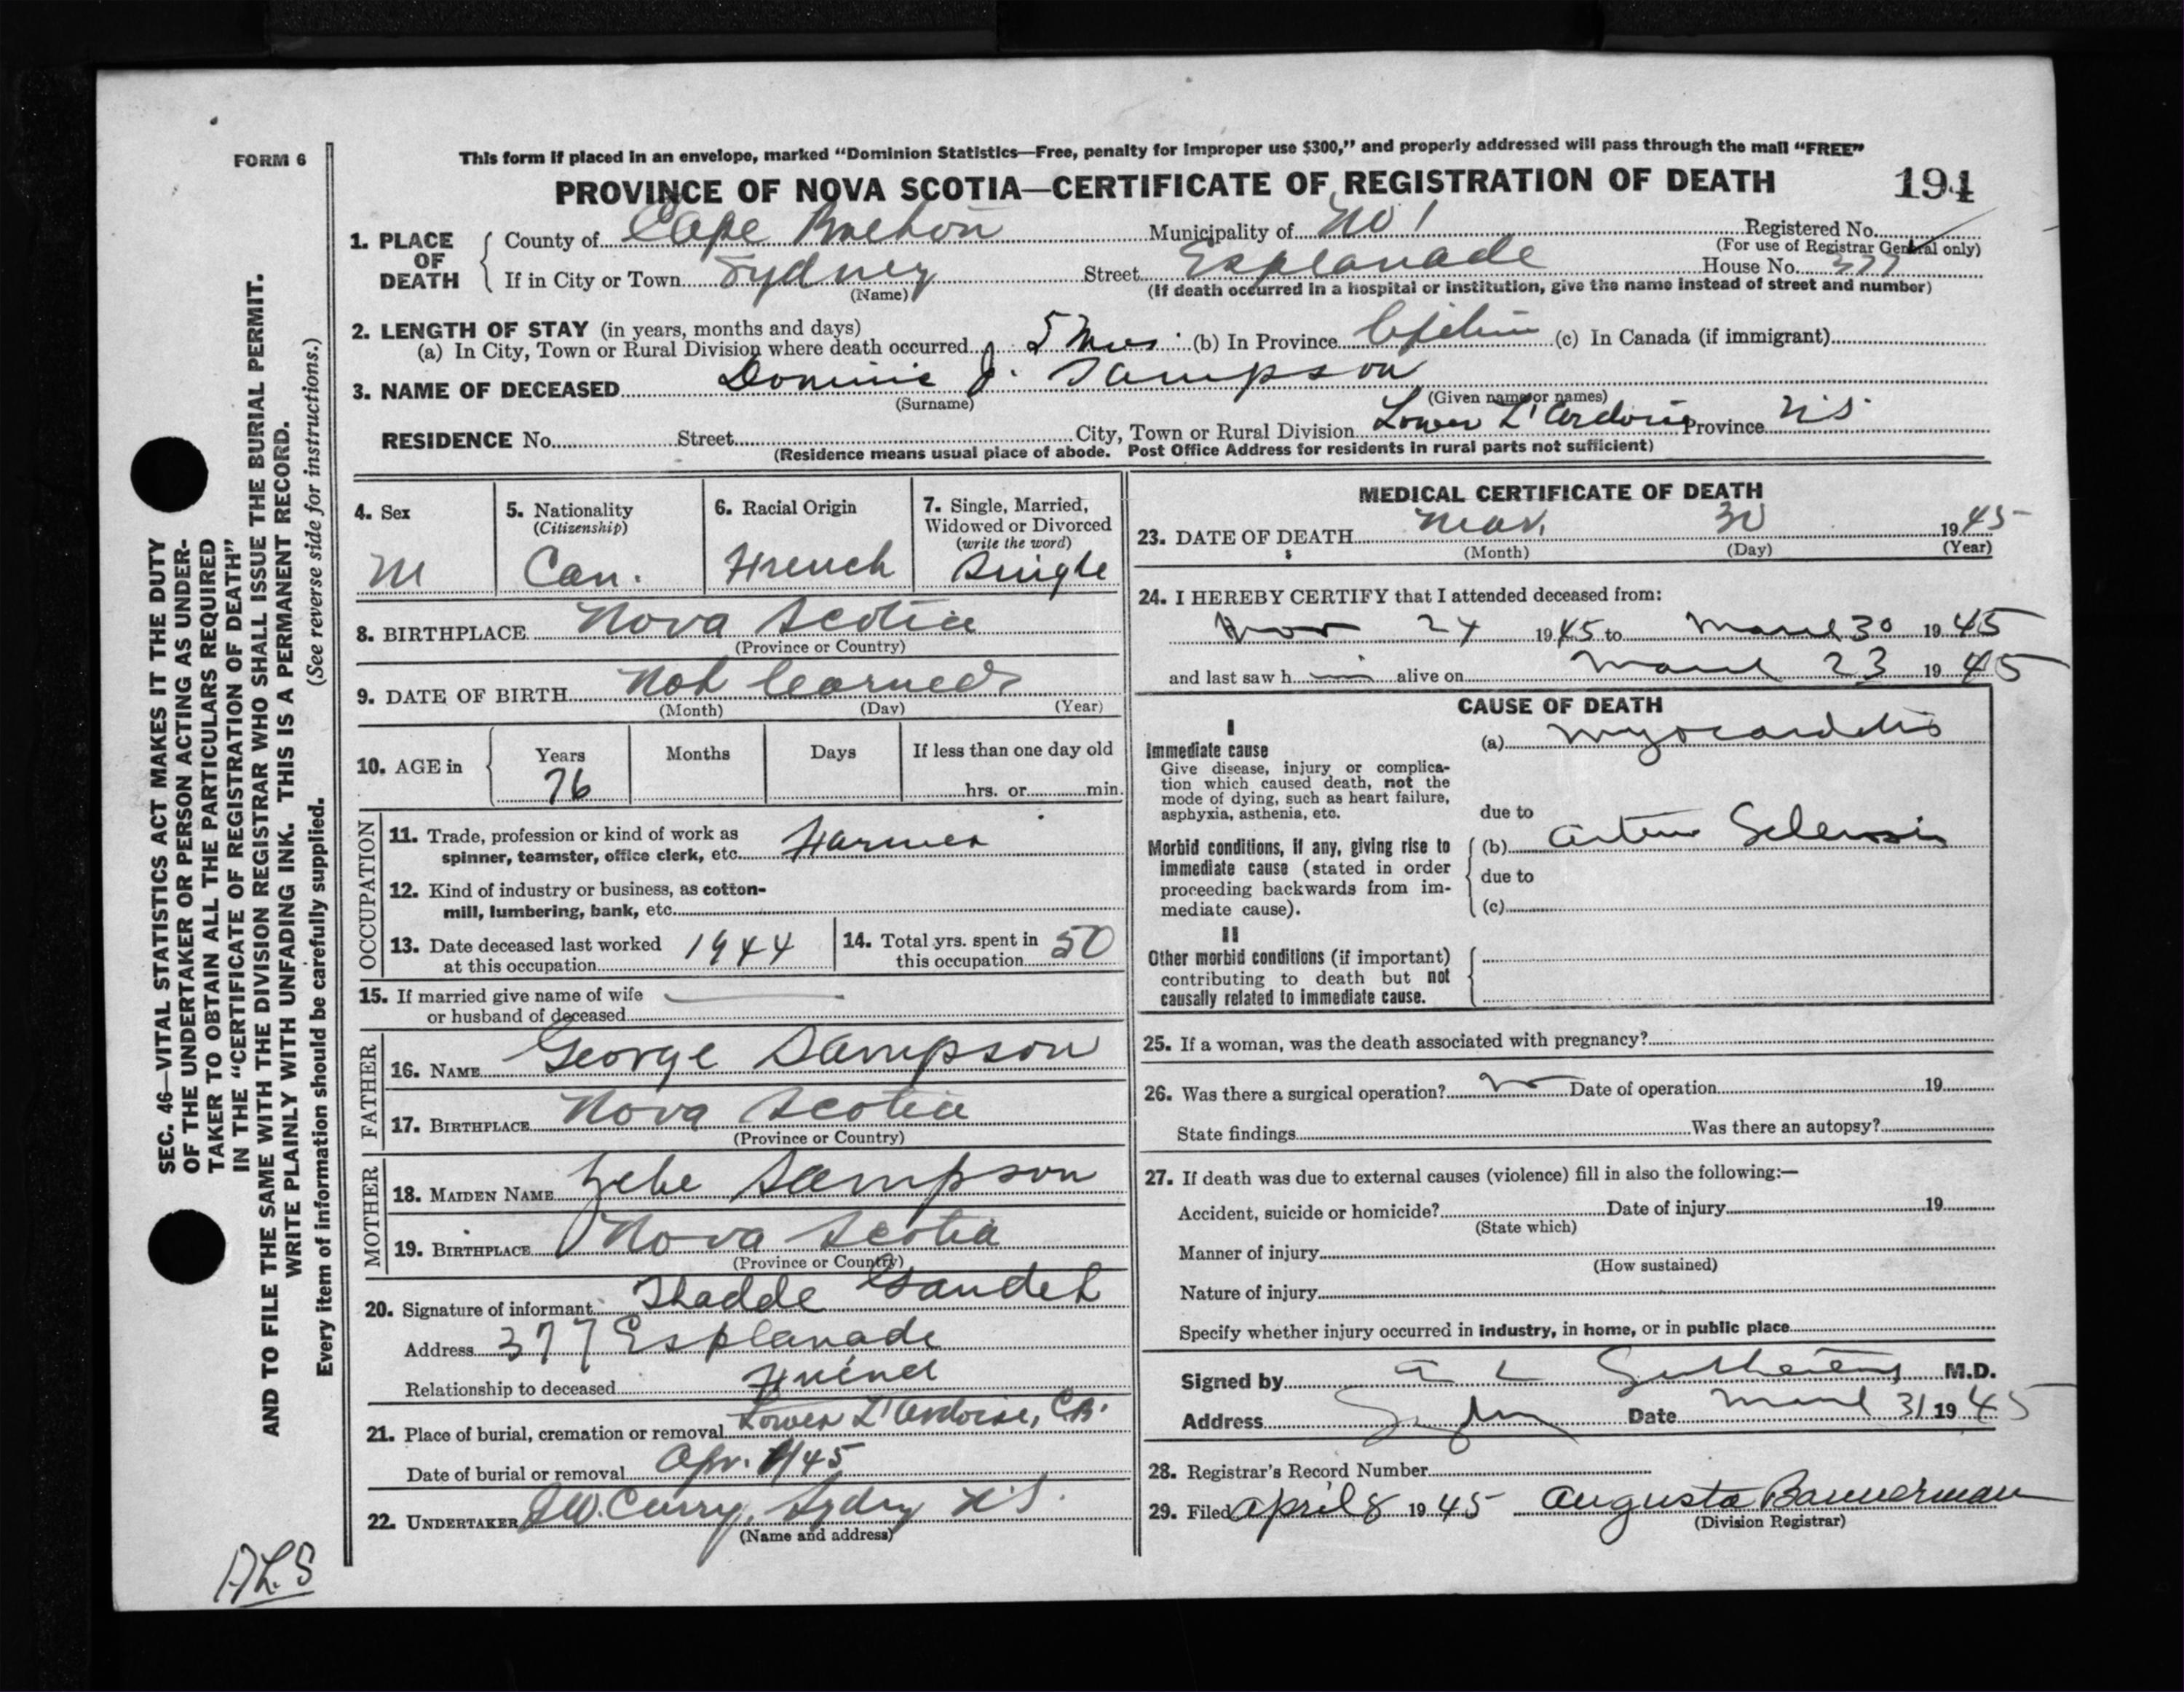 FORM 6
This form if placed in an envelope, marked “Dominion Statistics—Free, penalty for improper use $300,” and properly addressed will pass through the mail “FREE”
PROVINCE OF NOVA SCOTIA—CERTIFICATE OF REGISTRATION OF DEATH 191
1. PLACE OF DEATH
County of Cape Breton Municipality of No 1 Registered No.
(For use of Registrar General only)
If in City or Town Sydney Street Esplanade House No. 377
(Name) (If death occurred in a hospital or institution, give the name instead of street and number)
2. LENGTH OF STAY (in years, months and days)
(a) In City, Town or Rural Division where death occurred 5 Mos. (b) In Province Lifetime (c) In Canada (if immigrant)
3. NAME OF DECEASED Dominic J. Sampson
(Surname) (Given name or names)
RESIDENCE No. Street City, Town or Rural Division Lower L'Ardoise Province N.S.
(Residence means usual place of abode. Post Office Address for residents in rural parts not sufficient)
4. Sex
M
5. Nationality
(Citizenship)
Can.
6. Racial Origin
French
7. Single, Married,
Widowed or Divorced
(write the word)
Single
8. BIRTHPLACE Nova Scotia
(Province or Country)
9. DATE OF BIRTH Not learned
(Month) (Day) (Year)
10. AGE in
Years Months Days If less than one day old
76 hrs. or min.
OCCUPATION
11. Trade, profession or kind of work as
spinner, teamster, office clerk, etc. Farmer
12. Kind of industry or business, as cotton-
mill, lumbering, bank, etc.
13. Date deceased last worked
at this occupation 1944
14. Total yrs. spent in
this occupation 50
15. If married give name of wife
or husband of deceased
FATHER
16. NAME George Sampson
17. BIRTHPLACE Nova Scotia
(Province or Country)
MOTHER
18. MAIDEN NAME Sampson
19. BIRTHPLACE Nova Scotia
(Province or Country)
20. Signature of informant Thadde Gaudet
Address 377 Esplanade
Relationship to deceased Friend
21. Place of burial, cremation or removal Lower L'Ardoise, C.B.
Date of burial or removal Apr. 1/45
22. UNDERTAKER Curry, Sydney N.S.
(Name and address)
MEDICAL CERTIFICATE OF DEATH
23. DATE OF DEATH Mar. 30 1945
(Month) (Day) (Year)
24. I HEREBY CERTIFY that I attended deceased from:
Nov 24 1945 to March 30 1945
and last saw h im alive on March 23 1945
CAUSE OF DEATH
I
Immediate cause
Give disease, injury or complica-
tion which caused death, not the
mode of dying, such as heart failure,
asphyxia, asthenia, etc.
(a) Myocarditis
due to
Morbid conditions, if any, giving rise to
immediate cause (stated in order
proceeding backwards from im-
mediate cause).
(b) Arterio Sclerosis
due to
(c)
II
Other morbid conditions (if important)
contributing to death but not
causally related to immediate cause.
25. If a woman, was the death associated with pregnancy?
26. Was there a surgical operation? no Date of operation 19
State findings Was there an autopsy?
27. If death was due to external causes (violence) fill in also the following:—
Accident, suicide or homicide? Date of injury 19
(State which)
Manner of injury
(How sustained)
Nature of injury
Specify whether injury occurred in industry, in home, or in public place
Signed by M.D.
Address Sydney Date March 31 1945
28. Registrar's Record Number
29. Filed April 8 1945 Augusta Bannerman
(Division Registrar)
SEC. 46—VITAL STATISTICS ACT MAKES IT THE DUTY
OF THE UNDERTAKER OR PERSON ACTING AS UNDER-
TAKER TO OBTAIN ALL THE PARTICULARS REQUIRED
IN THE “CERTIFICATE OF REGISTRATION OF DEATH”
AND TO FILE THE SAME WITH THE DIVISION REGISTRAR WHO SHALL ISSUE THE BURIAL PERMIT.
WRITE PLAINLY WITH UNFADING INK. THIS IS A PERMANENT RECORD.
Every item of information should be carefully supplied. (See reverse side for instructions.)